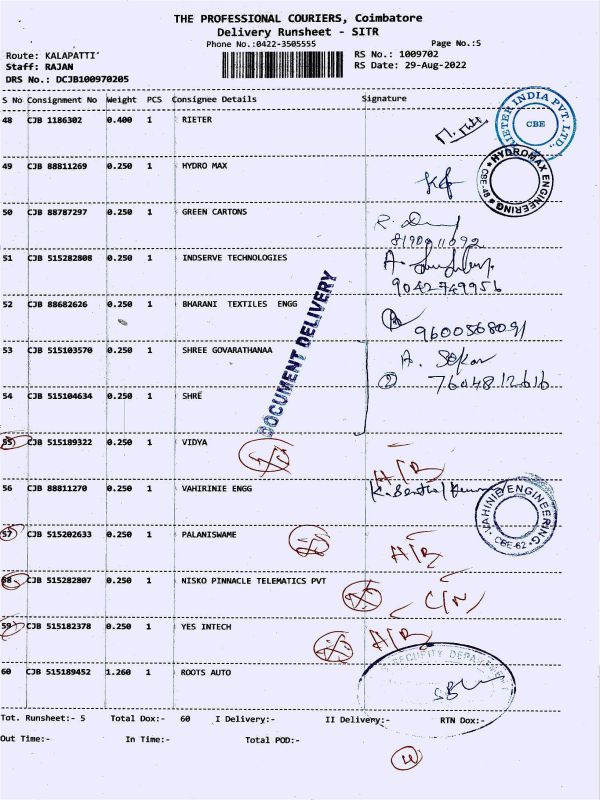 THE PROFESSIONAL COURIERS, Coimbatore
Delivery Runsheet - SITR
Phone No.:0422-3505555 Page No.:5
Route: KALAPATTI RS No.: 1009702
Staff: RAJAN RS Date: 29-Aug-2022
DRS No.: DCJB100970205
S No Consignment No Weight PCS Consignee Details Signature
48 CJB 1186302 0.400 1 RIETER
RIETER INDIA PVT. LTD., CBE
49 CJB 88811269 0.250 1 HYDRO MAX
HYDROMAX ENGINEERING CBE-48
50 CJB 88787297 0.250 1 GREEN CARTONS
51 CJB 515282808 0.250 1 INDSERVE TECHNOLOGIES
9042749956
52 CJB 88682626 0.250 1 BHARANI TEXTILES ENGG
9600568091
DOCUMENT DELIVERY
53 CJB 515103570 0.250 1 SHREE GOVARATHANAA
A. Sekar
54 CJB 515104634 0.250 1 SHRE
② 7604812616
55 CJB 515189322 0.250 1 VIDYA
A/B
56 CJB 88811270 0.250 1 VAHIRINIE ENGG
VAHINIE ENGINEERING CBE-62
57 CJB 515202633 0.250 1 PALANISWAME
A/B
58 CJB 515282807 0.250 1 NISKO PINNACLE TELEMATICS PVT
C/N
59 CJB 515182378 0.250 1 YES INTECH
A/B
60 CJB 515189452 1.260 1 ROOTS AUTO
SECURITY DEPARTMENT
Tot. Runsheet:- 5 Total Dox:- 60 I Delivery:- II Delivery:- RTN Dox:-
Out Time:- In Time:- Total POD:-